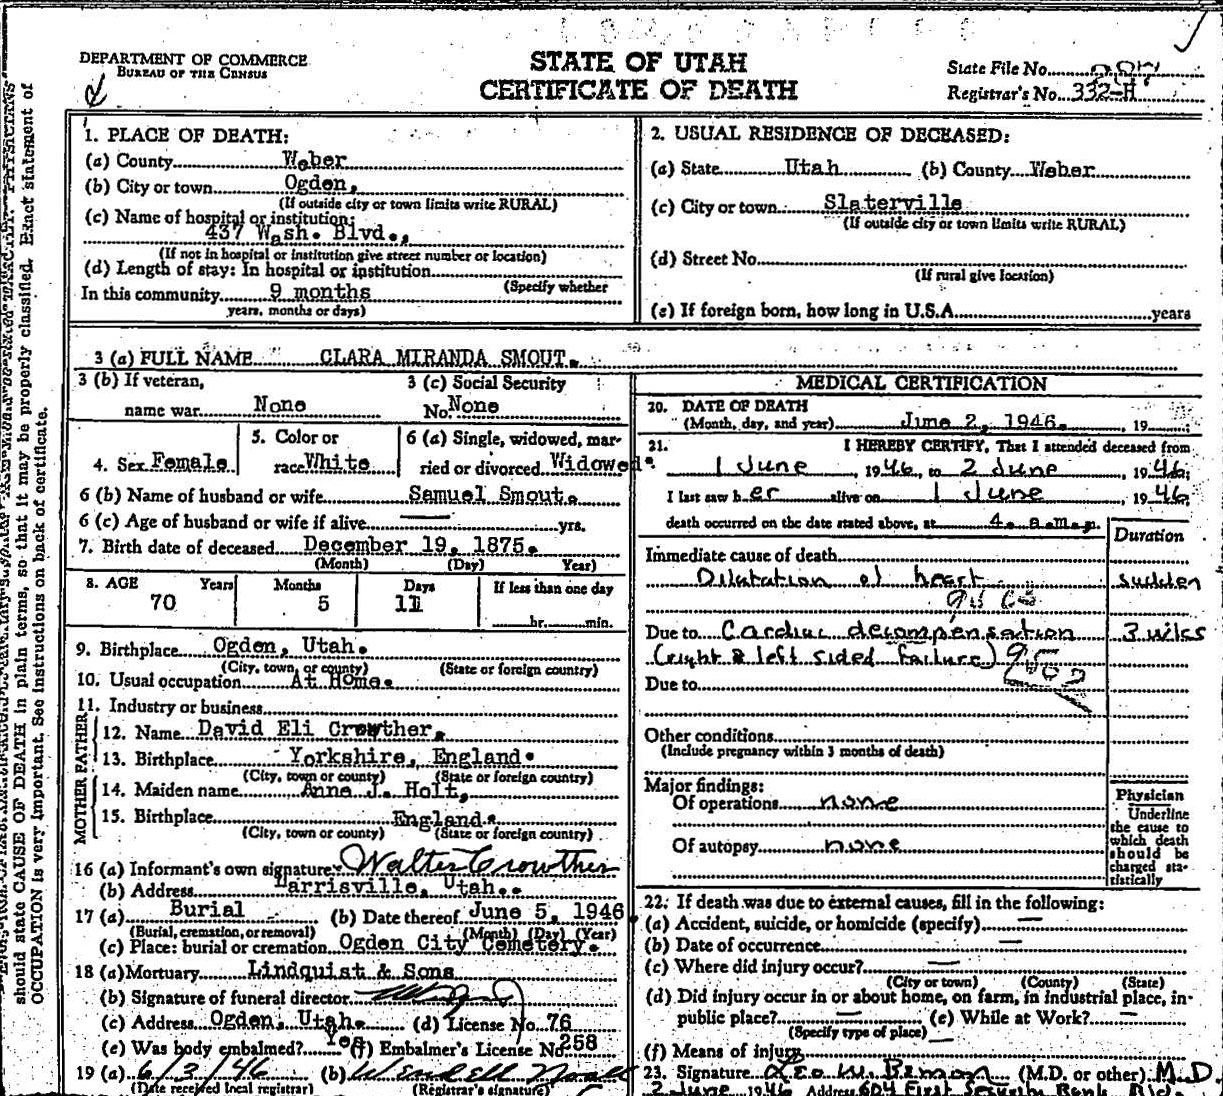 DEPARTMENT OF COMMERCE
BUREAU OF THE CENSUS
STATE OF UTAH
CERTIFICATE OF DEATH
State File No.
Registrar's No. 332-H
should state CAUSE OF DEATH in plain terms, so that it may be properly classified. Exact statement of
OCCUPATION is very important. See instructions on back of certificate.
1. PLACE OF DEATH:
(a) County Weber
(b) City or town Ogden,
(If outside city or town limits write RURAL)
(c) Name of hospital or institution:
437 Wash. Blvd.,
(If not in hospital or institution give street number or location)
(d) Length of stay: In hospital or institution
(Specify whether
In this community 9 months
years, months or days)
2. USUAL RESIDENCE OF DECEASED:
(a) State Utah (b) County Weber
(c) City or town Slaterville
(If outside city or town limits write RURAL)
(d) Street No.
(If rural give location)
(e) If foreign born, how long in U.S.A. years
3 (a) FULL NAME CLARA MIRANDA SMOUT.
3 (b) If veteran, 3 (c) Social Security
name war None No. None
4. Sex Female 5. Color or race White 6 (a) Single, widowed, married or divorced Widowed.
6 (b) Name of husband or wife Samuel Smout.
6 (c) Age of husband or wife if alive — yrs.
7. Birth date of deceased December 19, 1875.
(Month) (Day) Year)
8. AGE Years Months Days If less than one day
70 5 11 hr. min.
9. Birthplace Ogden, Utah.
(City, town, or county) (State or foreign country)
10. Usual occupation At Home.
11. Industry or business
FATHER
12. Name David Eli Crowther,
13. Birthplace Yorkshire, England.
(City, town or county) (State or foreign country)
MOTHER
14. Maiden name Anne J. Holt,
15. Birthplace England.
(City, town or county) (State or foreign country)
16 (a) Informant's own signature: Walter Crowther
(b) Address Harrisville, Utah.
17 (a) Burial (b) Date thereof June 5, 1946.
(Burial, cremation, or removal) (Month) (Day) (Year)
(c) Place: burial or cremation Ogden City Cemetery.
18 (a) Mortuary Lindquist & Sons
(b) Signature of funeral director
(c) Address Ogden, Utah. (d) License No. 76
(e) Was body embalmed? Yes (f) Embalmer's License No. 258
19 (a) 6/3/46 (b) Wendell
(Date received local registrar) (Registrar's signature)
MEDICAL CERTIFICATION
20. DATE OF DEATH
(Month, day, and year) June 2, 1946. , 19
21. I HEREBY CERTIFY, That I attended deceased from
1 June , 1946, to 2 June , 1946.
I last saw her alive on 1 June , 1946.
death occurred on the date stated above, at 4 a.m.
Duration
Immediate cause of death
Dilatation of heart sudden
Due to Cardiac decompensation 3 wks
(right & left sided failure)
Due to
Other conditions
(Include pregnancy within 3 months of death)
Major findings:
Of operations none
Of autopsy none
Physician
Underline
the cause to
which death
should be
charged sta-
tistically
22. If death was due to external causes, fill in the following:
(a) Accident, suicide, or homicide (specify) —
(b) Date of occurrence —
(c) Where did injury occur? —
(City or town) (County) (State)
(d) Did injury occur in or about home, on farm, in industrial place, in
public place? — (e) While at Work? —
(Specify type of place)
(f) Means of injury
23. Signature Leo W. Benson (M.D. or other) M.D.
2 June 1946 Address 604 First Security Bank Bld.